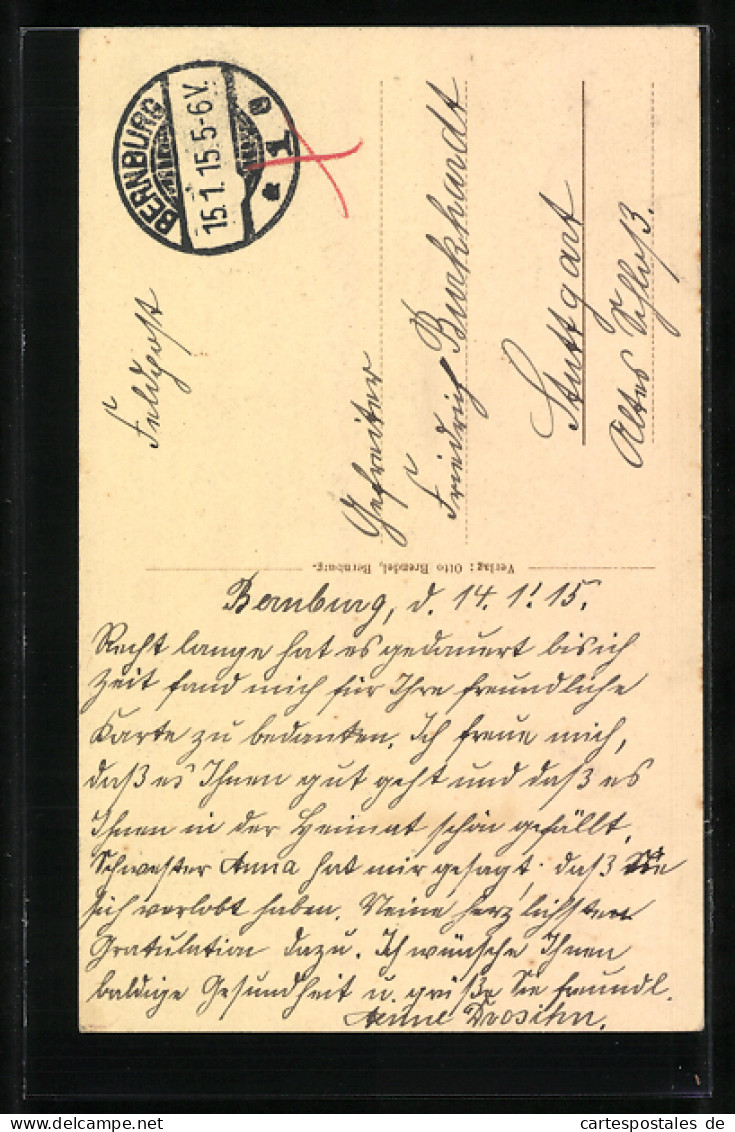 BERNBURG
15.1.15.5-6V.
* 1 e
Feldpost
Gefreiter
Friedrich Burkhardt
Stuttgart
Altes Schloß.
Verlag: Otto Brendel, Bernburg.
Bernburg, d. 14.1.15.
Recht lange hat es gedauert bis ich
Zeit fand mich für Ihre freundliche
Karte zu bedanken. Ich freue mich,
daß es Ihnen gut geht und daß es
Ihnen in der Heimat schön gefällt.
Schwester Anna hat mir gesagt, daß Sie
sich verlobt haben. Meine herzlichsten
Gratulation dazu. Ich wünsche Ihnen
baldige Gesundheit u. grüße Sie freundl.
Anne Drosihn.
delcampe.net
cartespostales de